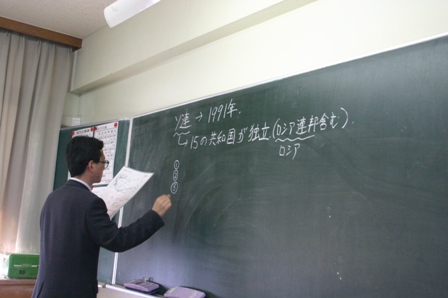 ソ連→1991年.
↳15の共和国が独立(ロシア連邦含む)
ロシア
①
②
③